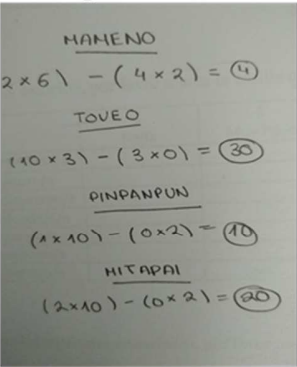 MAMENO
2 x 6) - (4 x 2) = 4
TOUEO
(10 x 3) - (3 x 0) = 30
PINPANPUN
(1 x 10) - (0 x 2) = 10
MITAPAI
(2 x 10) - (0 x 2) = 20